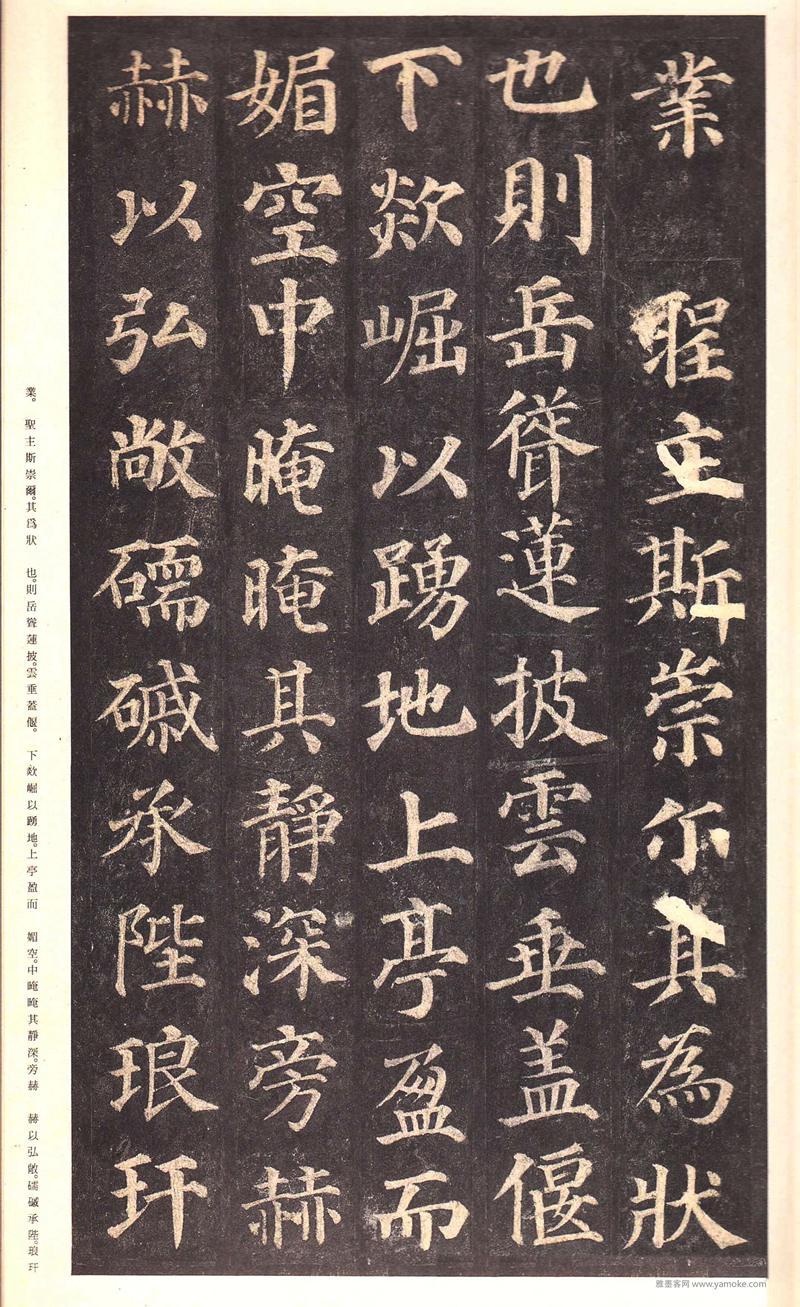 業 聖主斯崇尒其為狀
也則岳聳蓮披雲垂盖偃
下欻崛以踴地上亭盈而
媚空中晻晻其靜深旁赫
赫以弘敞礝磩承陛琅玕
業。 聖主斯崇爾。其爲狀 也。則岳聳蓮披。雲垂蓋偃。 下欻崛以踴地。上亭盈而 媚空。中晻晻其靜深。旁赫 赫以弘敞。礝磩承陛。琅玕
雅墨客网 www.yamoke.com